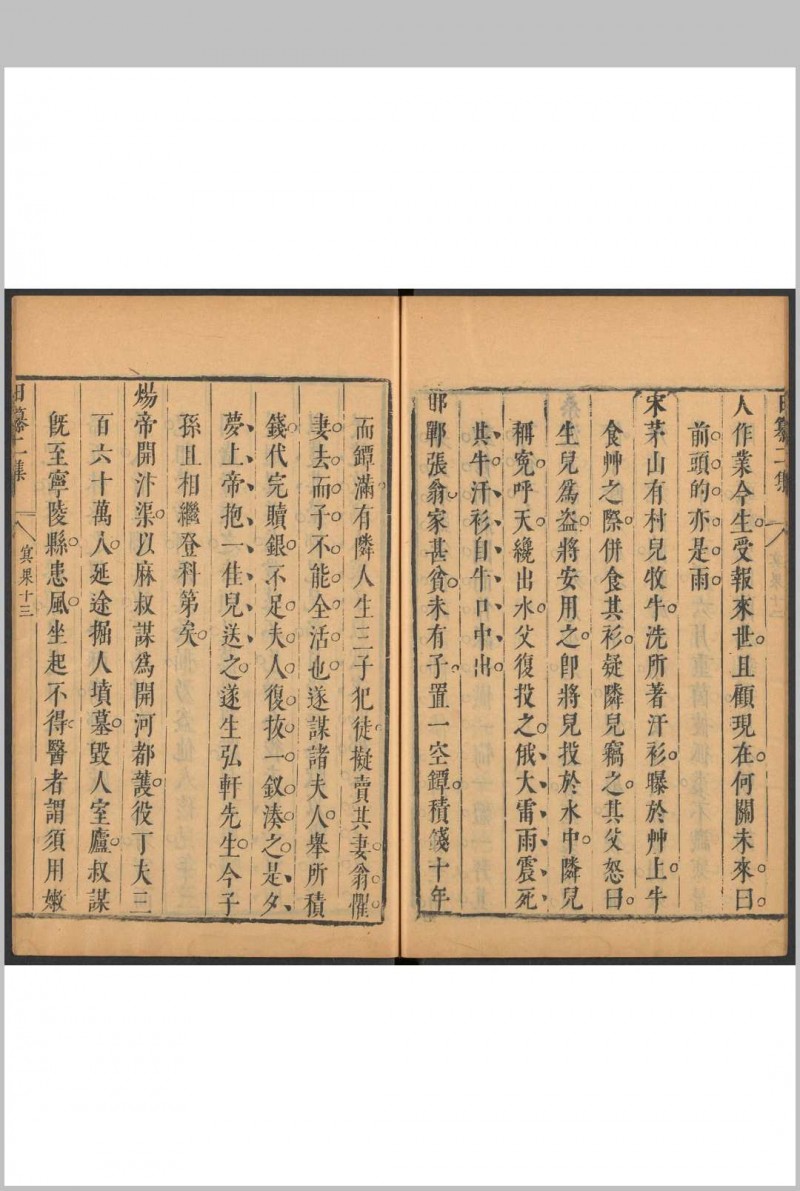 人作業今生受報來世且顧現在何關未來曰
前頭的亦是雨
宋茅山有村兒牧牛洗所著汗衫曝於艸上牛
食艸之際併食其衫疑隣兒竊之其父怒曰
生兒爲盗將安用之卽將兒投於水中隣兒
稱寃呼天纔出水父復投之俄大雷雨震死
其牛汗衫自牛口中出
邯鄲張翁家甚貧未有子置一空罈積錢十年
而罈滿有隣人生三子犯徒擬賣其妻翁懼
妻去而子不能全活也遂謀諸夫人舉所積
錢代完贖銀不足夫人復抜一釵湊之是夕
夢上帝抱一佳兒送之遂生弘軒先生今子
孫且相繼登科第矣
煬帝開汴渠以麻叔謀爲開河都護役丁夫三
百六十萬人延途掘人墳墓毀人室廬叔謀
旣至寧陵縣患風坐起不得醫者謂須用嫩
日纂二集
冥果十三